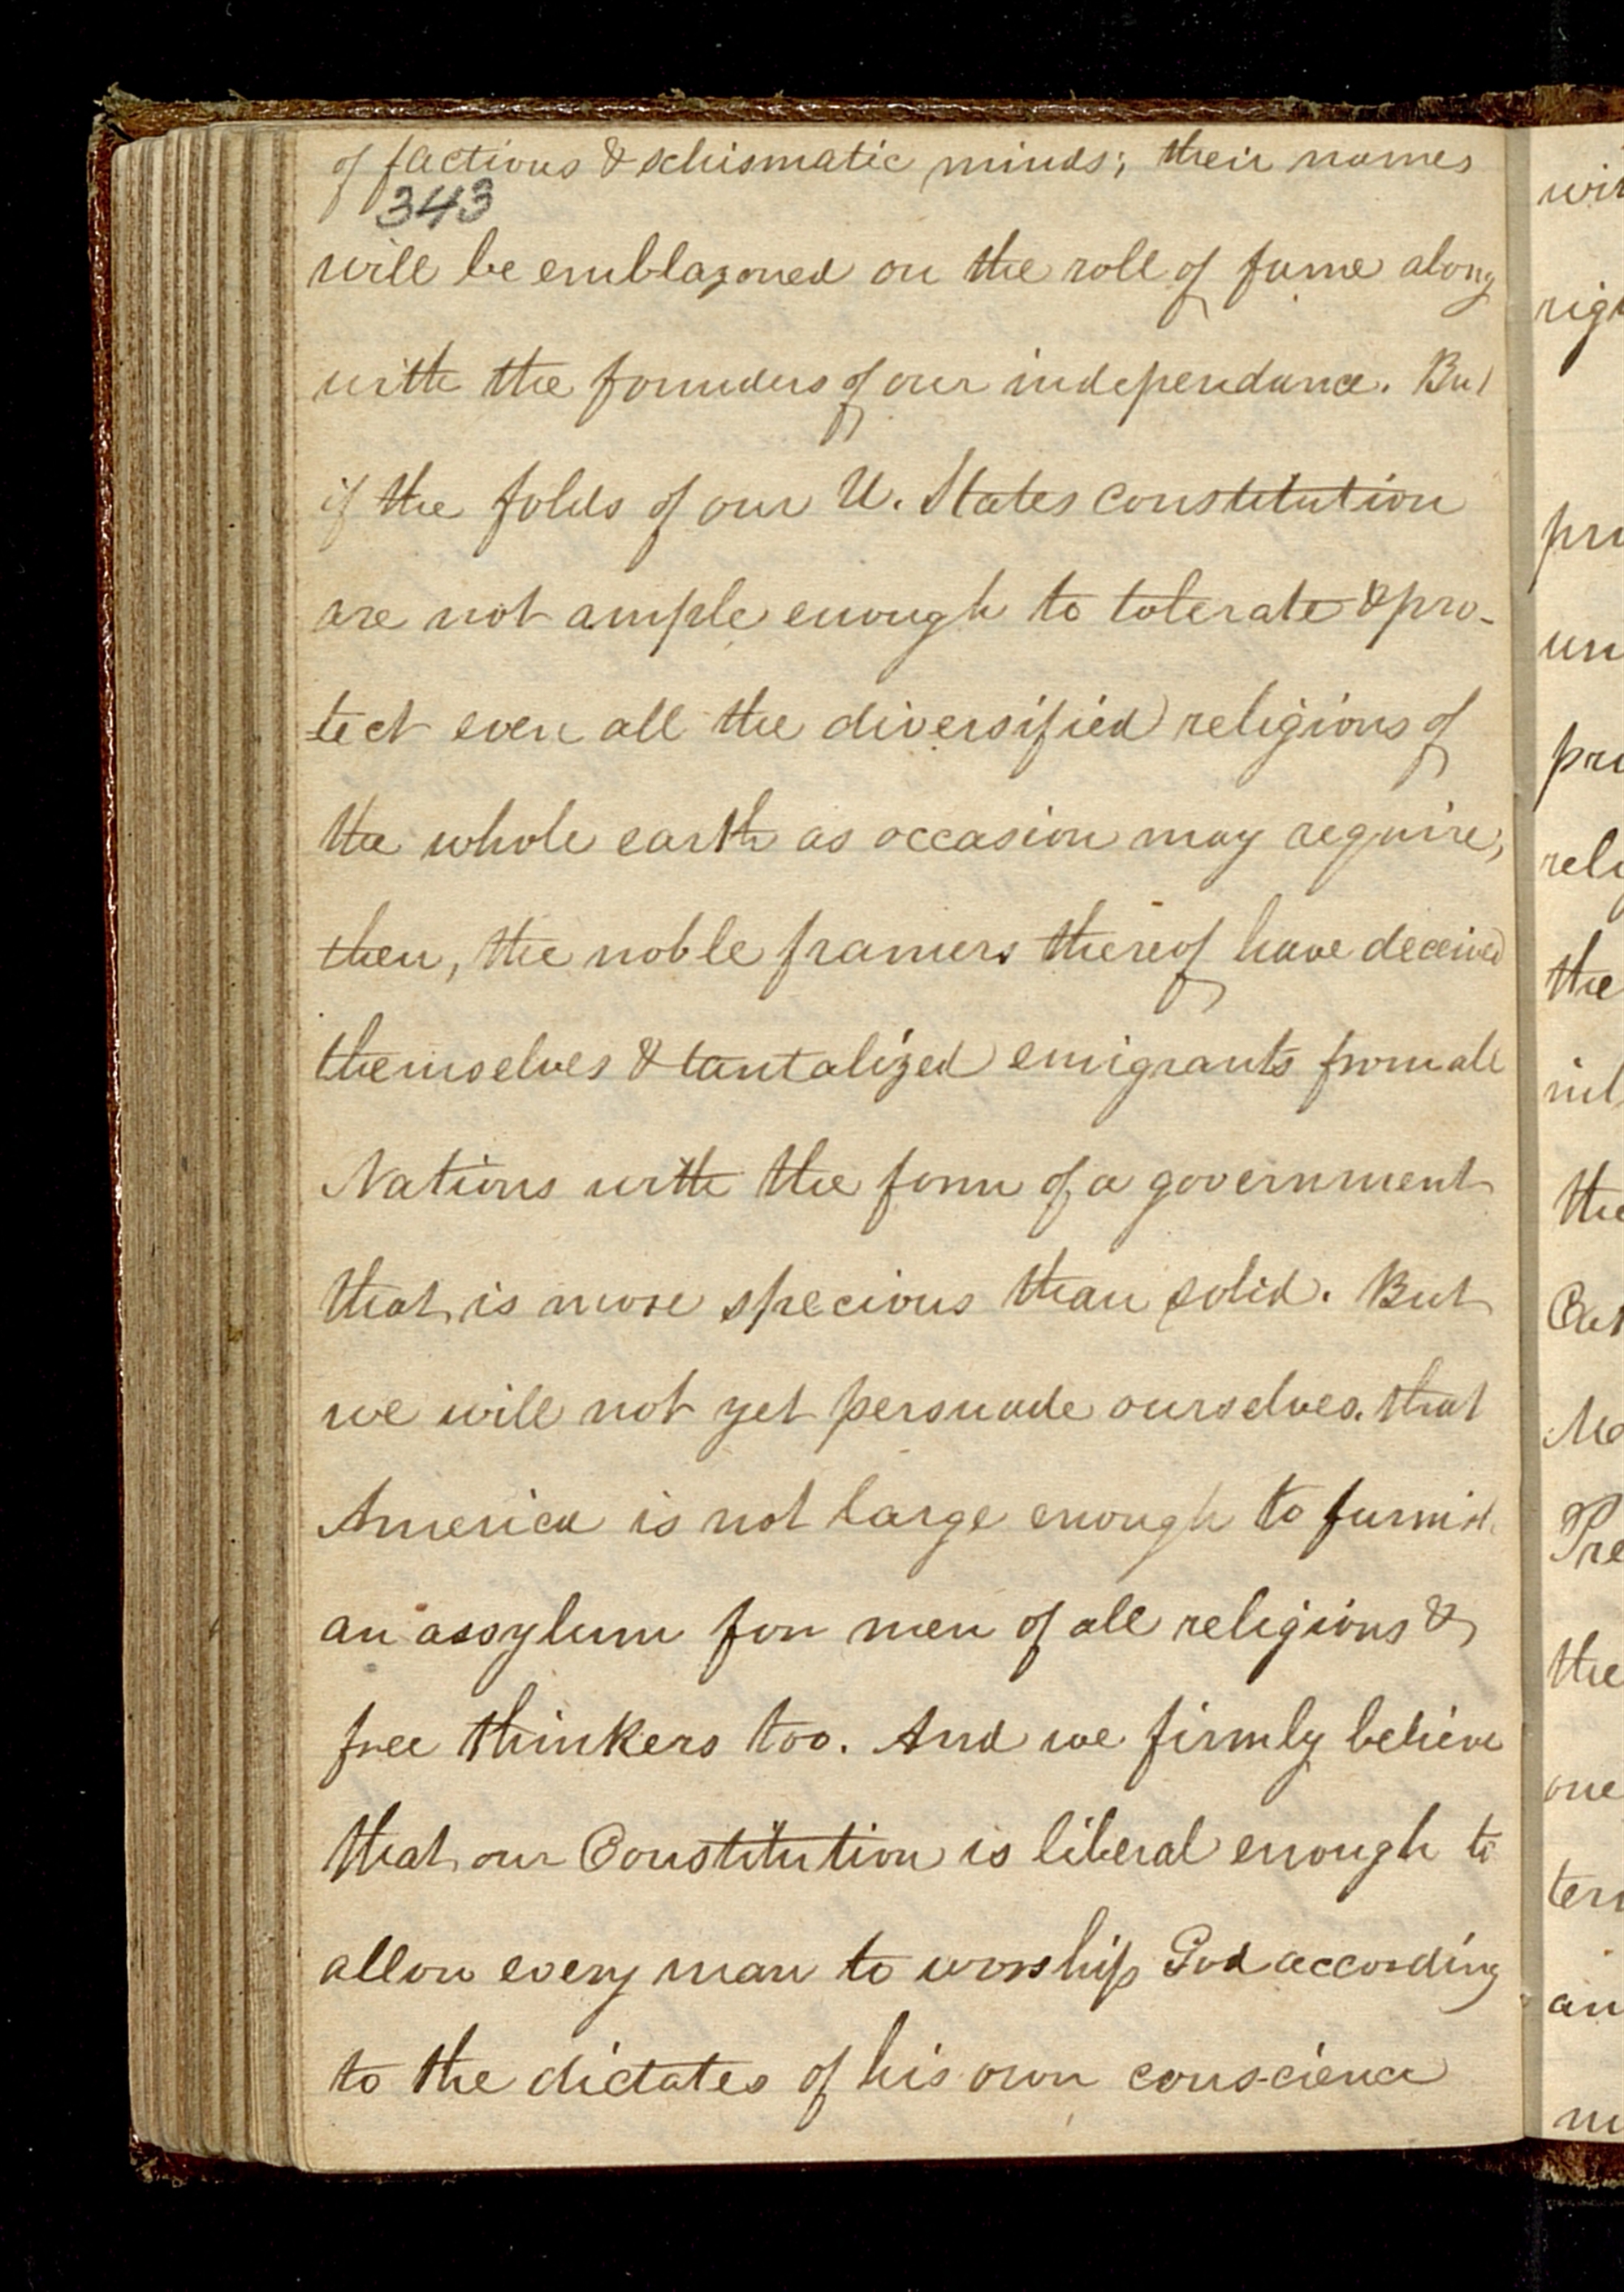 of factious & schismatic minds; their names
343
will be emblazoned on the roll of fame along
with the founders of our independance. But
if the folds of our U. States constitution
are not ample enough to tolerate & pro-
tect even all the diversified religions of
the whole earth as occasion may require,
then, the noble framers thereof have deceived
themselves & tantalized emigrants from all
Nations with the form of a government
that is more specious than solid. But
we will not yet persuade ourselves that
America is not large enough to furnish
an assylum for men of all religions &
free thinkers too. And we firmly believe
that our Constitution is liberal enough to
allow every man to worship God according
to the dictates of his own conscience